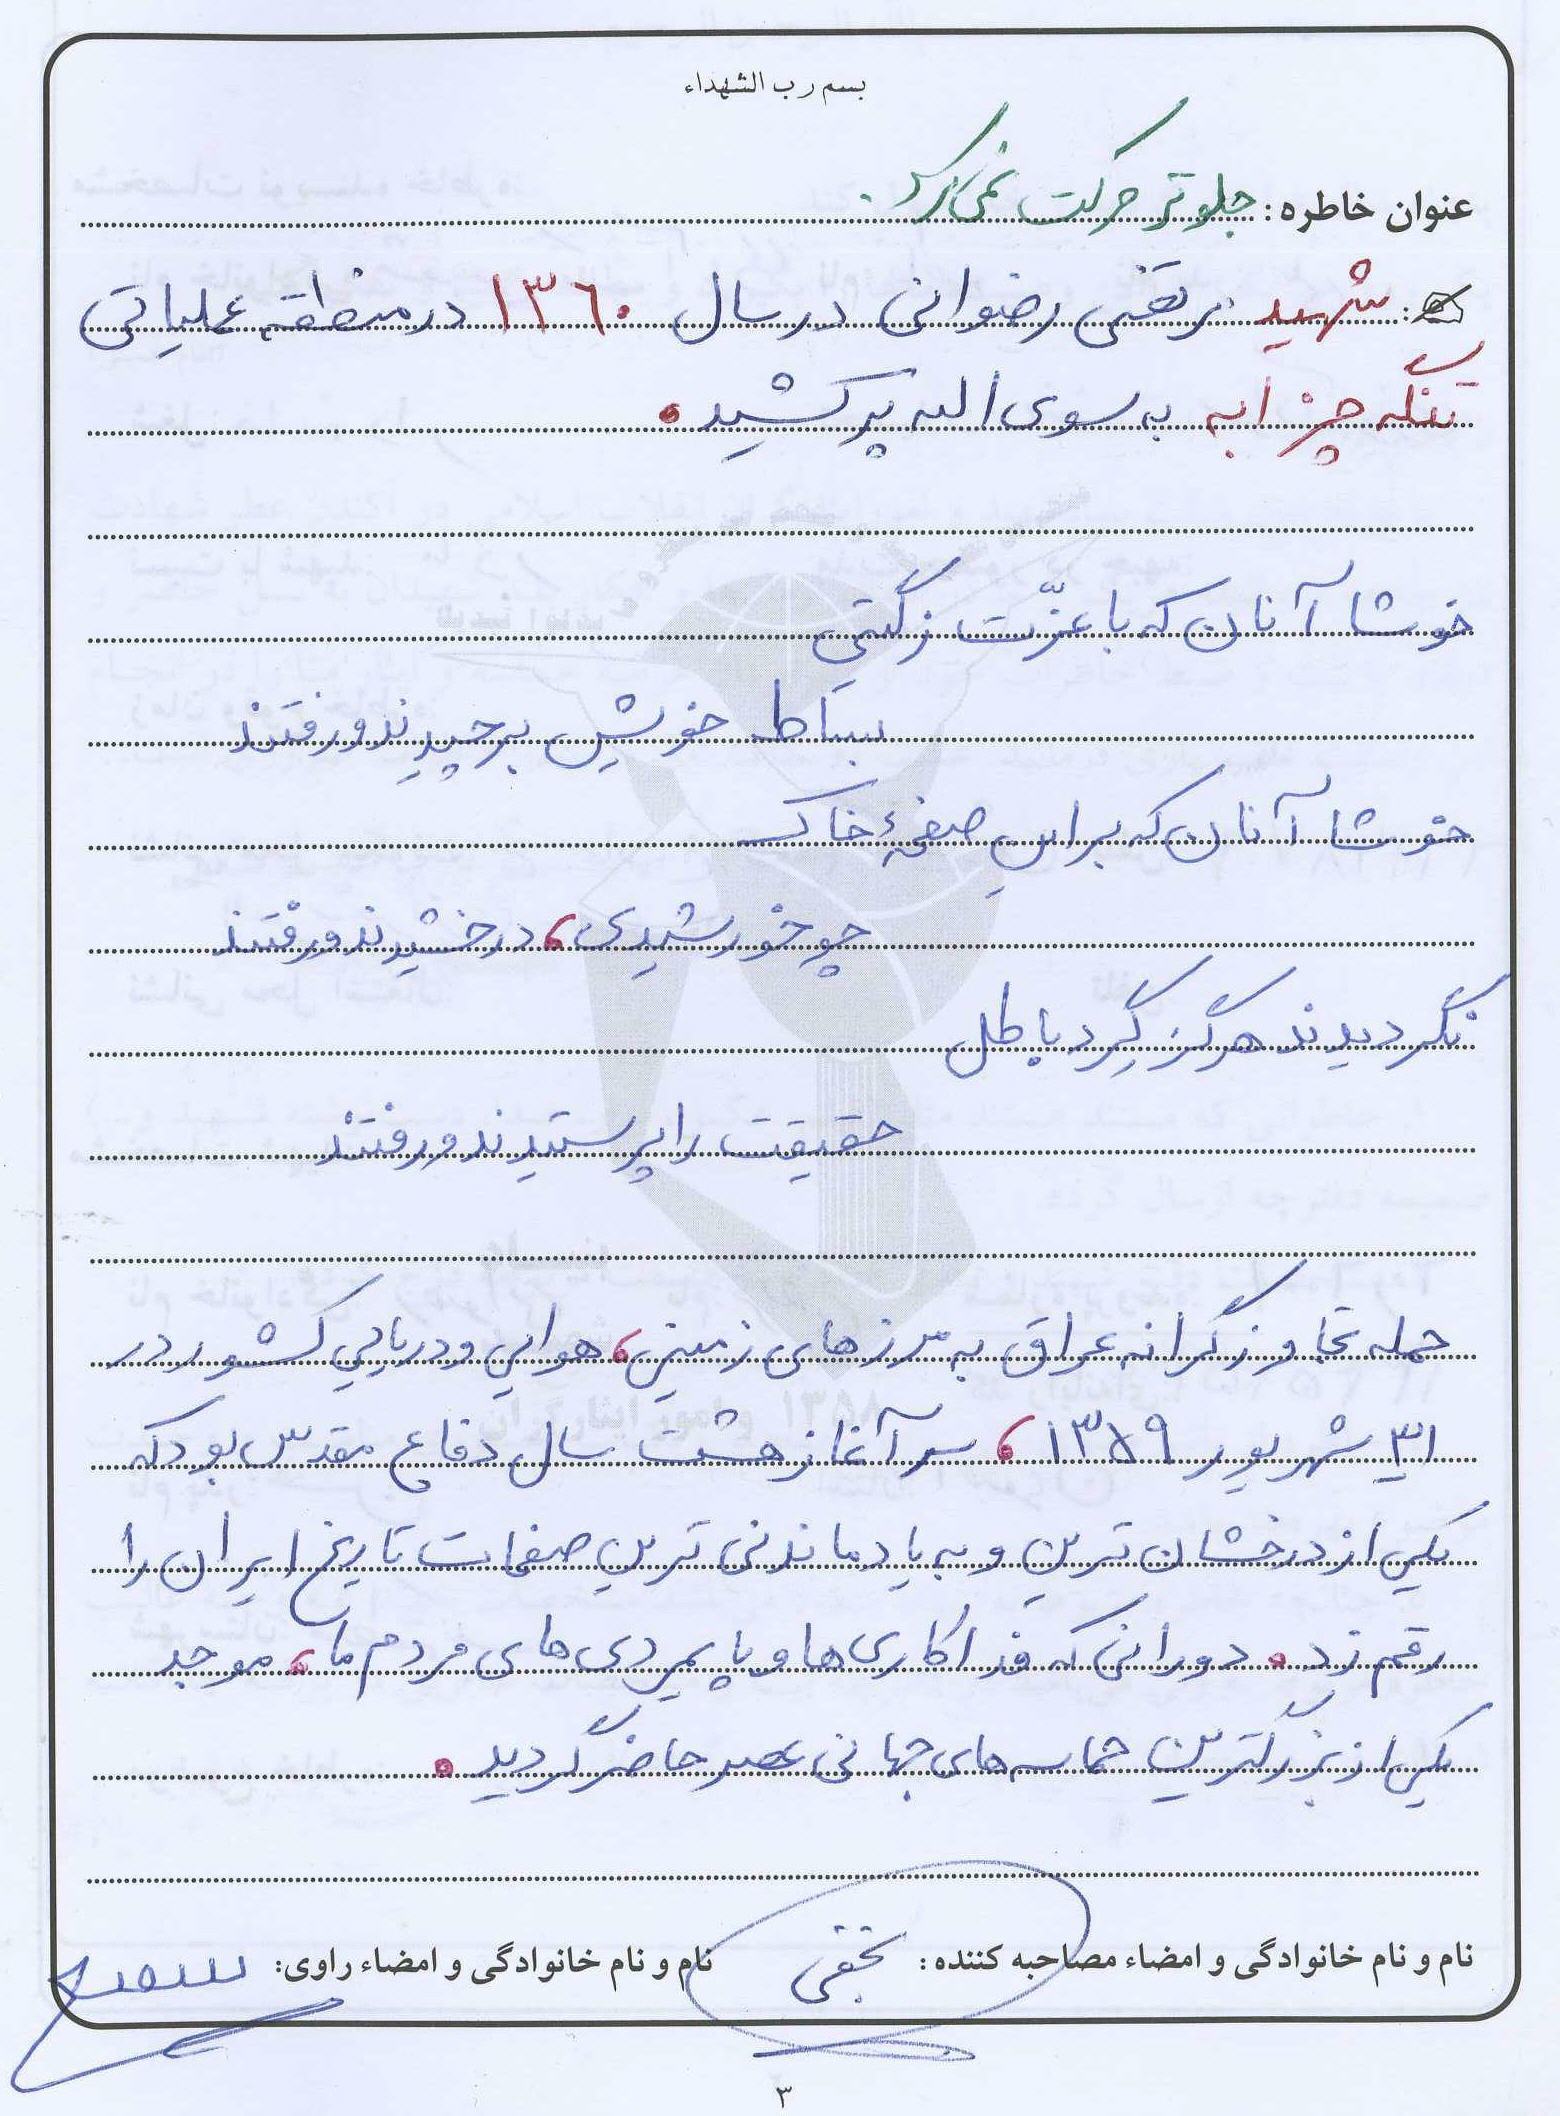 بسم رب الشهداء
عنوان خاطره: جلوتر حرکت نمی‌کرد.
: شهید مرتضی رضوانی در سال ۱۳۶۰ در منطقه عملیاتی
تنگه چزابه به سوی الله پر کشید.
خوشا آنان که با عزّت ز گیتی
بساط خویش برچیدند و رفتند
خوشا آنان که بر این صفحۀ خاک
چو خورشیدی، درخشیدند و رفتند
نگردیدند هرگز گِرد باطل
حقیقت را پرستیدند و رفتند
حمله تجاوزگرانه عراق به مرزهای زمینی، هوایی و دریایی کشور در
۳۱ شهریور ۱۳۵۹، سرآغاز هشت سال دفاع مقدس بود که
یکی از درخشان ترین و به یاد ماندنی ترین صفحات تاریخ ایران را
رقم زد. دورانی که فداکاری‌ها و پایمردی‌های مردم ما، موجد
یکی از بزرگترین حماسه‌های جهانی عصر حاضر گردید.
نام و نام خانوادگی و امضاء مصاحبه کننده: نام و نام خانوادگی و امضاء راوی:
۳